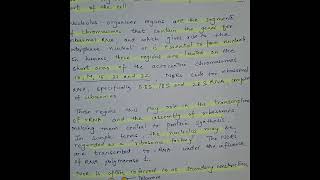 of the cell
Nucleolus organizer regions are the segments
of chromosomes that contain the genes for
ribosomal RNA and which gives rise to the
interphase nucleoli or is essential to form nucleoli
In humans these regions are located on the
short arms of the acrocentric chromosomes
13, 14, 15, 21 and 22. NORs code for ribosomal
RNA, specifically 5.8S, 18S and 28S rRNA
of ribosomes
These regions thus play role in the transcription
of rRNA and the assembly of ribosomes
making them central to protein synthesis
In simple terms the nucleolus may be
regarded as a ribosome factory. The NORs
are transcribed to RNA under the influence
of RNA polymerase I.
NOR is often referred to as secondary constriction